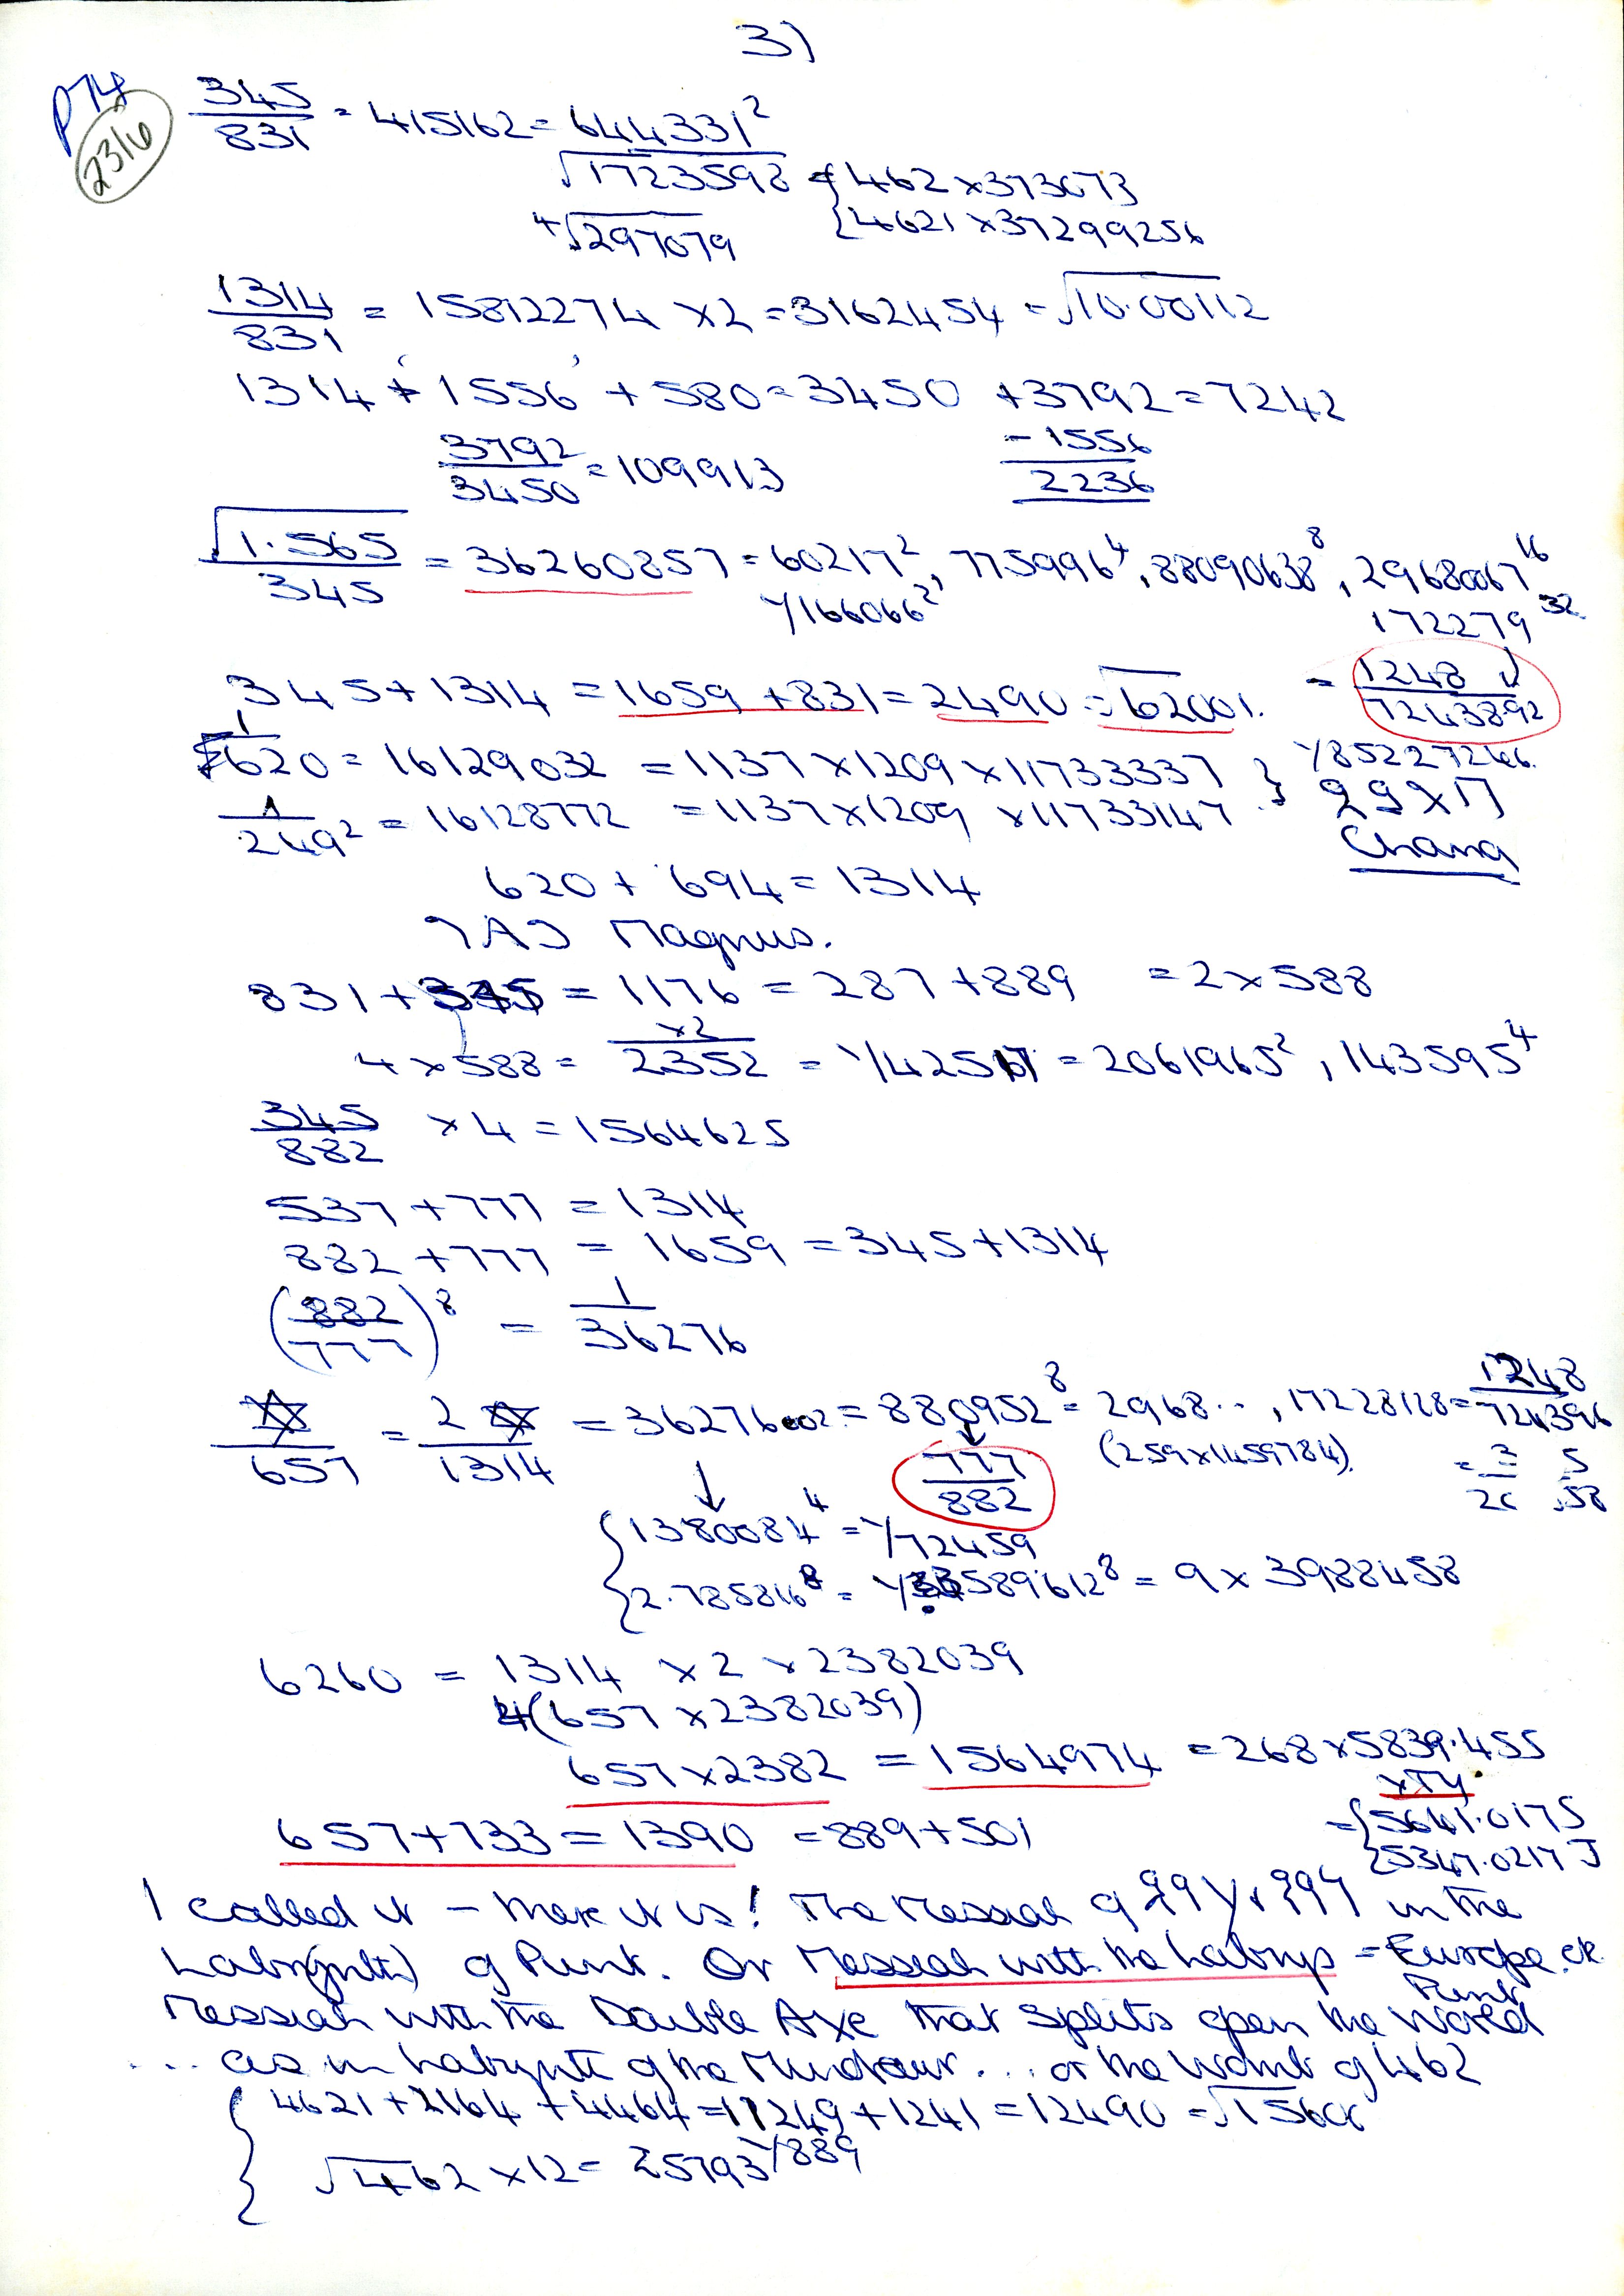 3)
P74
2316
345/831 = 415162 = 644331²
√1723592 = { 462 × 373073
⁴√297079 { 4621 × 37299256
1314/831 = 15812274 × 2 = 3162454 = √10.00112
1314 + 1556 + 580 = 3450 + 3792 = 7242
3792/3450 = 109913 - 1556
2236
√1.565/345 = 36260857 = 60217², 775996⁴, 88090638⁸, 29680067¹⁶
1/166066² 172279³²
345 + 1314 = 1659 + 831 = 2490 = √62001. = 1248/7243892
1/620 = 16129032 = 1137 × 1209 × 11733337 } 1/85227246.
1/249² = 16128772 = 1137 × 1209 × 11733147 } 29 × 17
Chang
620 + 694 = 1314
Magnus.
831 + 345 = 1176 = 287 + 889 = 2 × 588
×2
4 × 588 = 2352 = 1/42517 = 2061965², 143595⁴
345/882 × 4 = 1564625
537 + 777 = 1314
882 + 777 = 1659 = 345 + 1314
(882/777)⁸ = 1/36276
✡/657 = 2✡/1314 = 36276002 = 880952⁸ = 2968.., 17228128 = 1248/724396
777/882 (259 × 1459784)
{ 1380084⁴ = 1/72459
{ 2.785816⁸ = 589.612⁸ = 9 × 3988458
6260 = 1314 × 2 × 2382039
4(657 × 2382039)
657 × 2382 = 1564974 = 268 × 5839.455
= { 5641.0175
{ 25347.0217 J
657 + 733 = 1390 = 889 + 501
I called it – there it is! The Messiah of in the
Laby(rinth) of Punt. Or Messiah with the Labrys = Europe. etc
Punt
Messiah with the Double Axe that splits open the World
... as in Labyrinth of the Minotaur... or the womb of 462
{ 4621 + 2164 + 4464 = 11249 + 1241 = 12490 = √15606
{ √462 × 12 = 25793 1/889